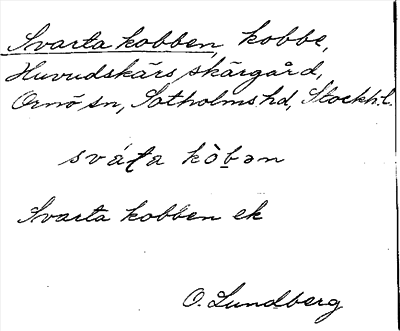 Svarta kobben, kobbe,
Huvudskärs skärgård,
Ornö sn, Sotholms hd, Stockh. l.
sváʈa kòb̲ən
Svarta kobben ek
O. Lundberg